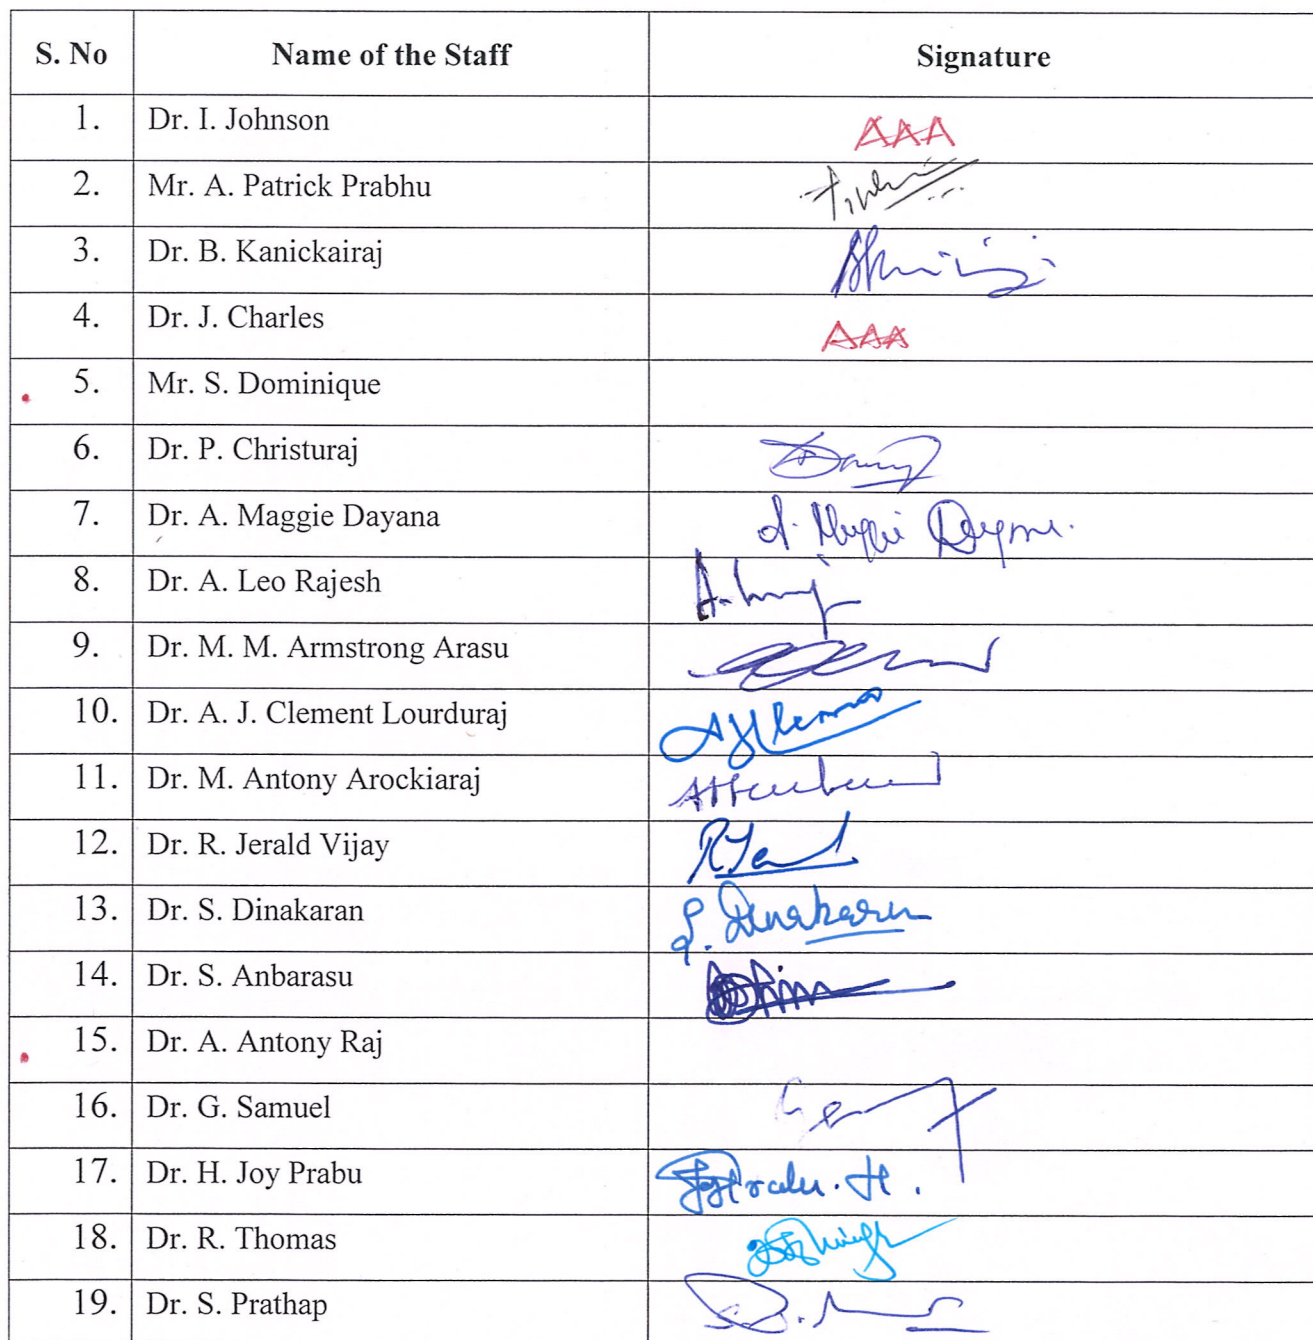 S. No Name of the Staff Signature
1. Dr. I. Johnson AAA
2. Mr. A. Patrick Prabhu
3. Dr. B. Kanickairaj
4. Dr. J. Charles AAA
5. Mr. S. Dominique
6. Dr. P. Christuraj
7. Dr. A. Maggie Dayana A. Maggie Dayana.
8. Dr. A. Leo Rajesh
9. Dr. M. M. Armstrong Arasu
10. Dr. A. J. Clement Lourduraj
11. Dr. M. Antony Arockiaraj
12. Dr. R. Jerald Vijay
13. Dr. S. Dinakaran S. Dinakaran
14. Dr. S. Anbarasu
15. Dr. A. Antony Raj
16. Dr. G. Samuel
17. Dr. H. Joy Prabu Joy Prabu. H.
18. Dr. R. Thomas
19. Dr. S. Prathap